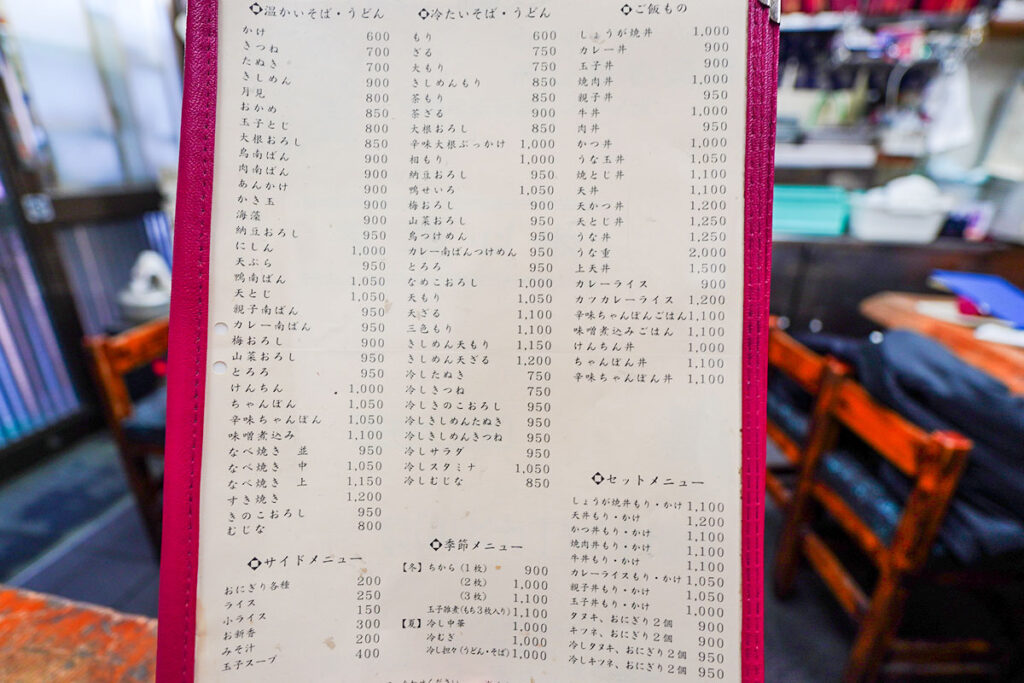 温かいそば・うどん
かけ 600
きつね 700
たぬき 700
きしめん 900
月見 800
おかめ 800
玉子とじ 800
大根おろし 850
鳥南ばん 900
肉南ばん 900
あんかけ 900
かき玉 900
海藻 900
納豆おろし 950
にしん 1,000
天ぷら 950
鴨南ばん 1,050
天とじ 1,050
親子南ばん 950
カレー南ばん 950
梅おろし 900
山菜おろし 950
とろろ 950
けんちん 1,000
ちゃんぽん 1,050
辛味ちゃんぽん 1,050
味噌煮込み 1,100
なべ焼き 並 950
なべ焼き 中 1,050
なべ焼き 上 1,150
すき焼き 1,200
きのこおろし 950
むじな 800
サイドメニュー
おにぎり各種 200
ライス 250
小ライス 150
お新香 300
みそ汁 200
玉子スープ 400
冷たいそば・うどん
もり 600
ざる 750
大もり 750
きしめんもり 850
茶もり 850
茶ざる 900
大根おろし 850
辛味大根ぶっかけ 1,000
相もり 1,000
納豆おろし 950
鴨せいろ 1,050
梅おろし 900
山菜おろし 950
鳥つけめん 950
カレー南ばんつけめん 950
とろろ 950
なめこおろし 1,000
天もり 1,050
天ざる 1,100
三色もり 1,100
きしめん天もり 1,150
きしめん天ざる 1,200
冷したぬき 750
冷しきつね 750
冷しきのこおろし 950
冷しきしめんたぬき 950
冷しきしめんきつね 950
冷しサラダ 950
冷しスタミナ 1,050
冷しむじな 850
季節メニュー
【冬】ちから(1枚) 900
(2枚) 1,000
(3枚) 1,100
玉子雑煮(もち3枚入り) 1,100
【夏】冷し中華 1,000
冷むぎ 1,000
冷し担々(うどん・そば) 1,000
ご飯もの
しょうが焼丼 1,000
カレー丼 900
玉子丼 900
焼肉丼 1,000
親子丼 950
牛丼 1,000
肉丼 950
かつ丼 1,000
うな玉丼 1,050
焼とじ丼 1,100
天丼 1,100
天かつ丼 1,200
天とじ丼 1,250
うな丼 1,250
うな重 2,000
上天丼 1,500
カレーライス 900
カツカレーライス 1,200
辛味ちゃんぽんごはん 1,100
味噌煮込みごはん 1,100
けんちん丼 1,000
ちゃんぽん丼 1,100
辛味ちゃんぽん丼 1,100
セットメニュー
しょうが焼丼もり・かけ 1,100
天丼もり・かけ 1,200
かつ丼もり・かけ 1,100
焼肉丼もり・かけ 1,100
牛丼もり・かけ 1,100
カレーライスもり・かけ 1,050
親子丼もり・かけ 1,050
玉子丼もり・かけ 1,000
タヌキ、おにぎり2個 900
キツネ、おにぎり2個 900
冷しタヌキ、おにぎり2個 950
冷しキツネ、おにぎり2個 950